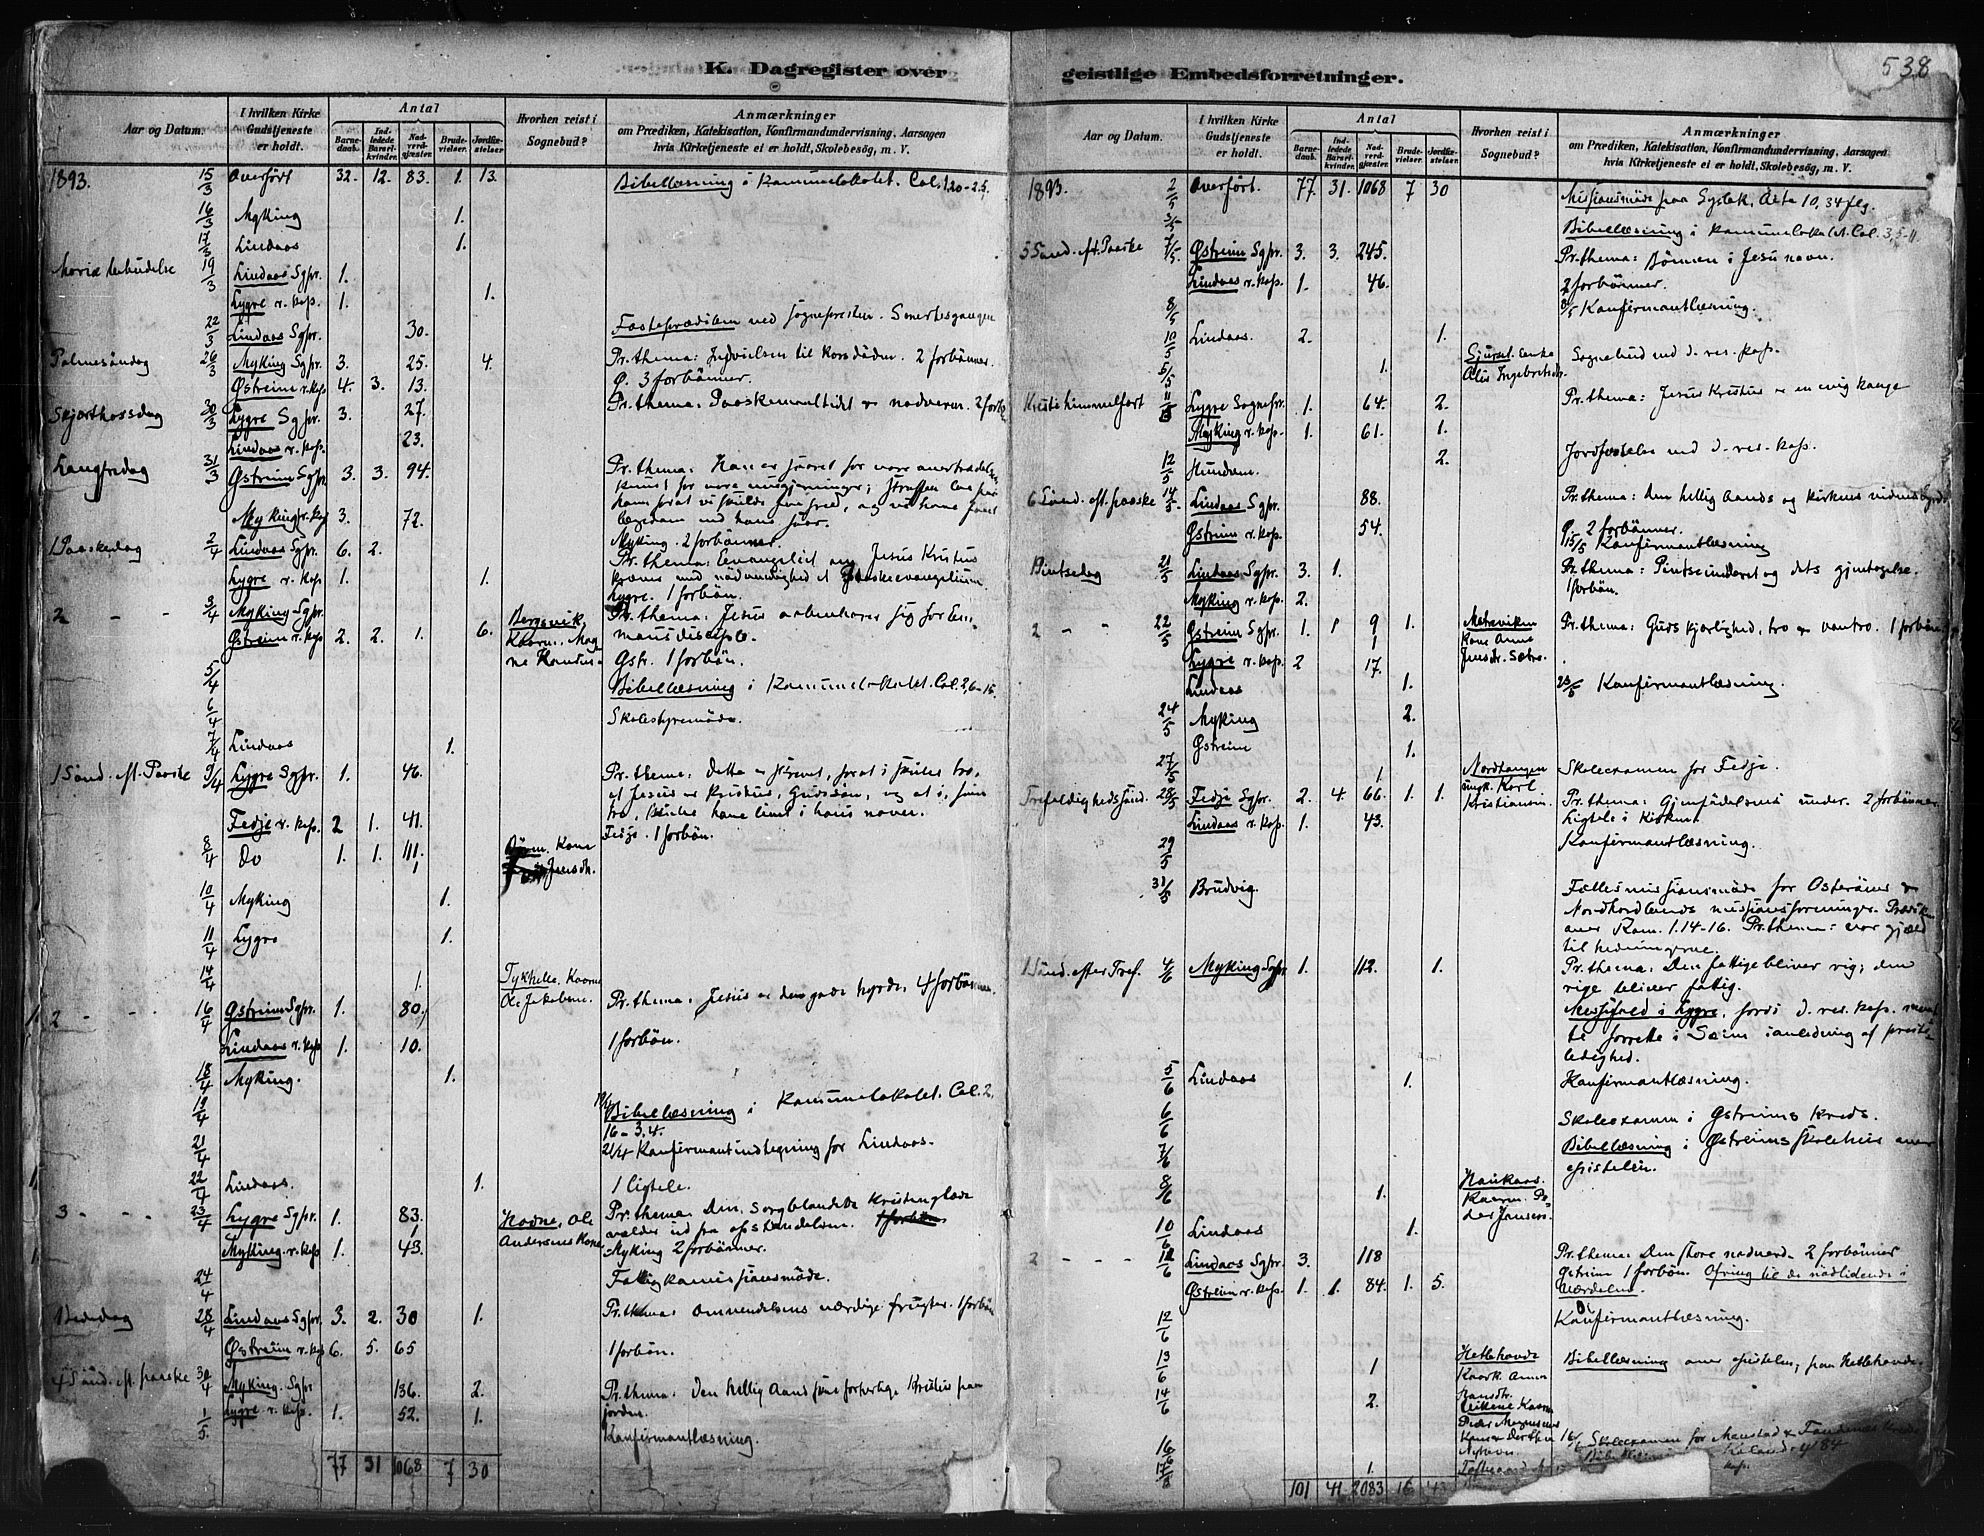 538
K. Dagregister over
Aar og Datum.
I hvilken Kirke Gudstjeneste er holdt.
Antal
Barnedaab.
Indledede Barselkvinder.
Nadverdgjæster.
Brudevielser.
Jordfæstelser
Hvorhen reist i Sognebud?
Anmærkninger
om Prædiken, Katekisation, Konfirmandundervisning, Aarsagen
hvis Kirketjeneste ei er holdt, Skolebesög, m. V.
1893. 15/3 Overfört 32. 12. 83. 1. 13. Bibellæsning i Kommunelokalet. Col. 1,20-2,5.
16/3 Myking 1.
17/3 Lindaas 1.
Mariæ bebudelse 19/3 Lindaas Sgpr. 1.
Lygre r. kap. 1. 1.
22/3 Lindaas Sgpr. 30. Fasteprædiken ved sognepresten. Smertesgangen
Palmesöndag 26/3 Myking Sgpr. 3. 25. 4. Pr. thema: Indvielsen til Korsdöden. 2 forbönner.
Østreim r. kap. 4. 3. 13. Ø. 3 forbönner.
Skjærthorsdag 30/3 Lygre Sgpr. 3. 27. Pr. thema: Paaskemaaltidet & nadveren. 2 forb.
Lindaas r. kap. 23.
Langfredag 31/3 Østreim Sgpr. 3. 3. 94. Pr. thema: Han er saaret for vore overtrædelser
knust for vore misgjerninger; straffen laa paa
ham forat vi skulde have fred, og vi have faaet
Myking r. kap 3. 72. lægedom ved hans saar.
Myking. 2 forbönner.
1 Paaskedag 2/4 Lindaas Sgpr. 6. 2. Pr. thema: Evangeliet om Jesus Kristus
kræver med nödvendighed et Paaskeevangelium
Lygre r. kap 1. 1. Lygre. 1 forbön.
2 - - 3/4 Myking Sgpr. Bergsvik, Pr. thema: Jesus aabenbarer sig for Em-
Østreim r. kap 2. 2. 1. 6. mausdisciple.
Østr. 1 forbön.
5/4 Bibellæsning i Kommunelokalet. Col. 2,6-15.
6/4 Skolestyremöde.
7/4 Lindaas 1.
1 Sönd. eft. Paaske 9/4 Lygre Sgpr. 1. 46. Pr. thema: Dette er skrevet, forat i skulle tro,
at Jesus er Kristus, Guds sön, og at i, som
Fedje r. kap. 2 1. 41. tro, skulle have livet i hans navn.
Fedje. 1 forbön.
8/4 Do 1. 1. 111.
10/4 Myking 1.
11/4 Lygre 1.
14/4 1. Tykhelle, Kaarm.
2 - - 16/4 Østreim Sgpr. 1. 80. Ole Jakobsen. Pr. thema: Jesus er den gode hyrde. 4 forbönner.
Lindaas r. kap 1. 10. 1 forbön.
18/4 Myking. 1.
19/4 19/4 Bibellæsning i Kommunelokalet. Col. 2,
16-3,4.
21/4 21/4 Konfirmantindtegning for Lindaas.
22/4 Lindaas. 1. 1 ligtale.
3 - - 23/4 Lygre Sgpr. 1. 83. Havne, Ole Pr. thema: Den sorgblandede kristenglæde
Andersens Kone ud fra opstandelsen. 1 forbön
Myking r. kap 1. 43. Myking 2 forbönner.
24/4 Fattigkommissionsmöde.
Bededag 28/4 Lindaas Sgpr. 3. 2. 30 1. Pr. thema: Omvendelsens værdige frugter. 1 forbön
Østreim r. kap 6. 5. 65 1 forbön.
4 Sönd. eft. paaske 30/4 Myking. Sgpr 136. 2. Pr. thema: Den hellig Aand
Lygre r. kap. 1. 52. 1. jorden.
1/5. Konfirmantlæsning.
77 31 1068 7 30
geistlige Embedsforretninger.
Aar og Datum.
I hvilken Kirke Gudstjeneste er holdt.
Antal
Barnedaab.
Indledede Barselkvinder.
Nadverdgjæster.
Brudevielser.
Jordfæstelser
Hvorhen reist i Sognebud?
Anmærkninger
om Prædiken, Katekisation, Konfirmandundervisning, Aarsagen
hvis Kirketjeneste ei er holdt, Skolebesög, m. V.
1893. 2/5 Overfört. 77. 31. 1068 7 30 Missionsmöde paa Syslak. Acta 10,34 flg.
3/5 Bibellæsning i Kommunelokalet. Col. 3,5-11.
5 Sönd. eft. Paaske 7/5 Østreim Sgpr. 3. 3. 245. Pr. thema: Bönnen i Jesu navn.
Lindaas r. kap. 1. 46. 2 forbönner.
8/5 8/5 Konfirmantlæsning.
10/5 Lindaas. 2. 1.
5/5 1. Sognebud ved d. res. kap.
Kristi himmelfart 11/5 Lygre Sognepr. 1. 64. 2. Pr. thema: Jesus Kristus er en evig konge
Myking r. kap. 1. 61. 1.
12/5 Hundven. 2. Jordfæstelse ved d. res. kap.
6 Sönd. eft. paaske 14/5. Lindaas Sgpr. 88. Pr. thema: Den hellig Aands og kirkens vidnesbyrd
Østreim r. kap. 54. Ø. 2 forbönner.
15/5 Konfirmantlæsning
Pintsedag 21/5 Lindaas Sgpr. 3. 1. Pr. thema: Pintseunderet og dets gjentagelse.
Myking r. kap. 2. 1 forbön.
2 - - 22/5 Østreim Sgpr. 1. 1 9 1. Pr. thema: Guds kjærlighed, tro & vantro. 1 forbön
Lygre r. kap. 2 17.
Lindaas 1. 23/5 Konfirmantlæsning.
24/5 Myking 2.
Østreim 1.
27/5 1. Nordtangen Skoleexamen for Fedje.
Trefoldighedssönd. 28/5 Fedje Sgpr. 2. 4. 66. 1. 1. Pr. thema: Gjenfödelsens under. 2 forbönner.
Lindaas r. kap. 1. 43. Ligtale i Kirken.
29/5 Konfirmantlæsning.
31/5 Brudvig. Fællesmissionsmöde for Osteröens &
Nordhordlands missionsforeninger. Prædiken
over Rom. 1.14-16. Pr. thema: vor gjæld
til hedningerne.
1 Sönd. efter Tref. 4/6 Myking Sgpr. 1. 112. 1. Pr. thema: Den fattige bliver rig; den
rige bliver fattig.
Messefald i Lygre, fordi d. res. kap. maatte
forrette i Sæim i anledning af preste-
ledighed.
5/6 Lindaas 1. Konfirmantlæsning.
6/6 Skoleexamen i Østreims kreds.
7/6 Bibellæsning i Østreims skolehus over
epistelen.
8/6 1. Haukaas.
10/6 Lindaas 1.
2 - - 11/6 Lindaas Sgpr. 3. 118 Pr. thema: Den store nadverd. 2 forbönner
Østreim r. kap. 1. 1. 84. 1. 5. Østreim 1 forbön. Ofring til de nödlidende i
Værdalen.
12/6 Konfirmantlæsning.
13/6 1 Hetlehovde Bibellæsning over epistelen, paa Hetlehovde.
14/6 2.
16/6 16/6 Skoleexamen for
17/6 1.
101 41 2083 16 43